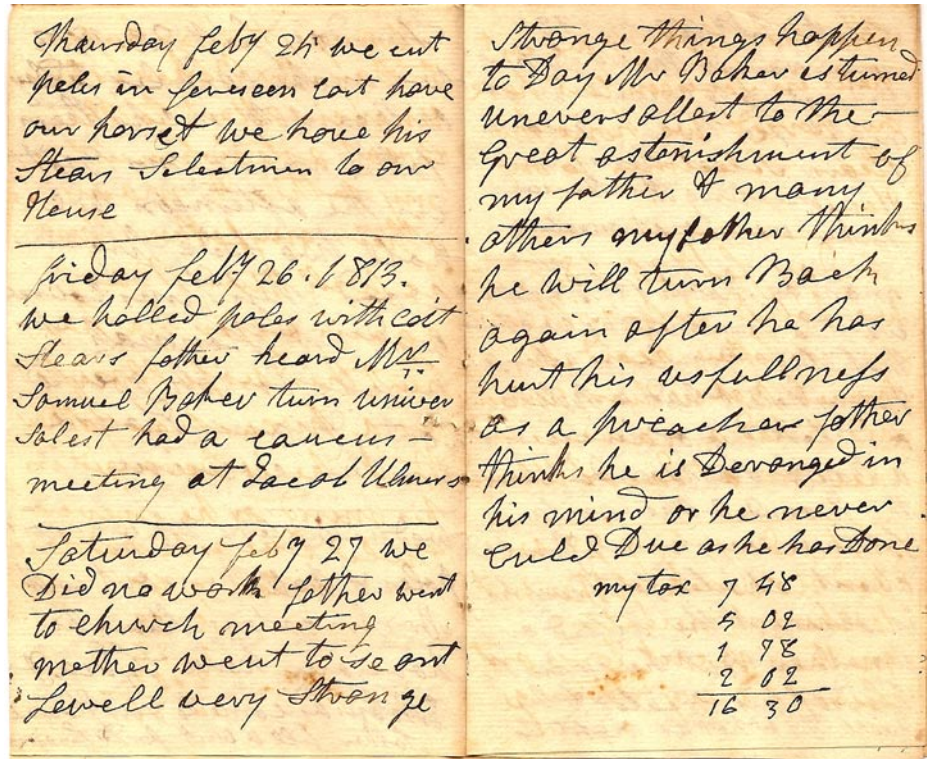 Thursday feby 25 we cut
poles in cart have
our horse & we have his
Stears Selectmen to our
House
friday feby 26. 1813.
we halled poles with
Stears father heard Mr
Samuel Baker turn univer
salest had a caucus —
meeting at Jacob Ulmers
Saturday feby 27 we
Did no work father went
to church meeting
mother went to se ant
Sewell very Strange
Strange things happen
to Day Mr Baker is turned
uneversallest to the —
great astonishment of
my father & many
others my father thinks
he will turn Back
again after he has
hurt his usfullness
as a preacher father
thinks he is Deranged in
his mind or he never
Culd Due as he has Done
my tax 7 48
5 02
1 78
2 02
16 30